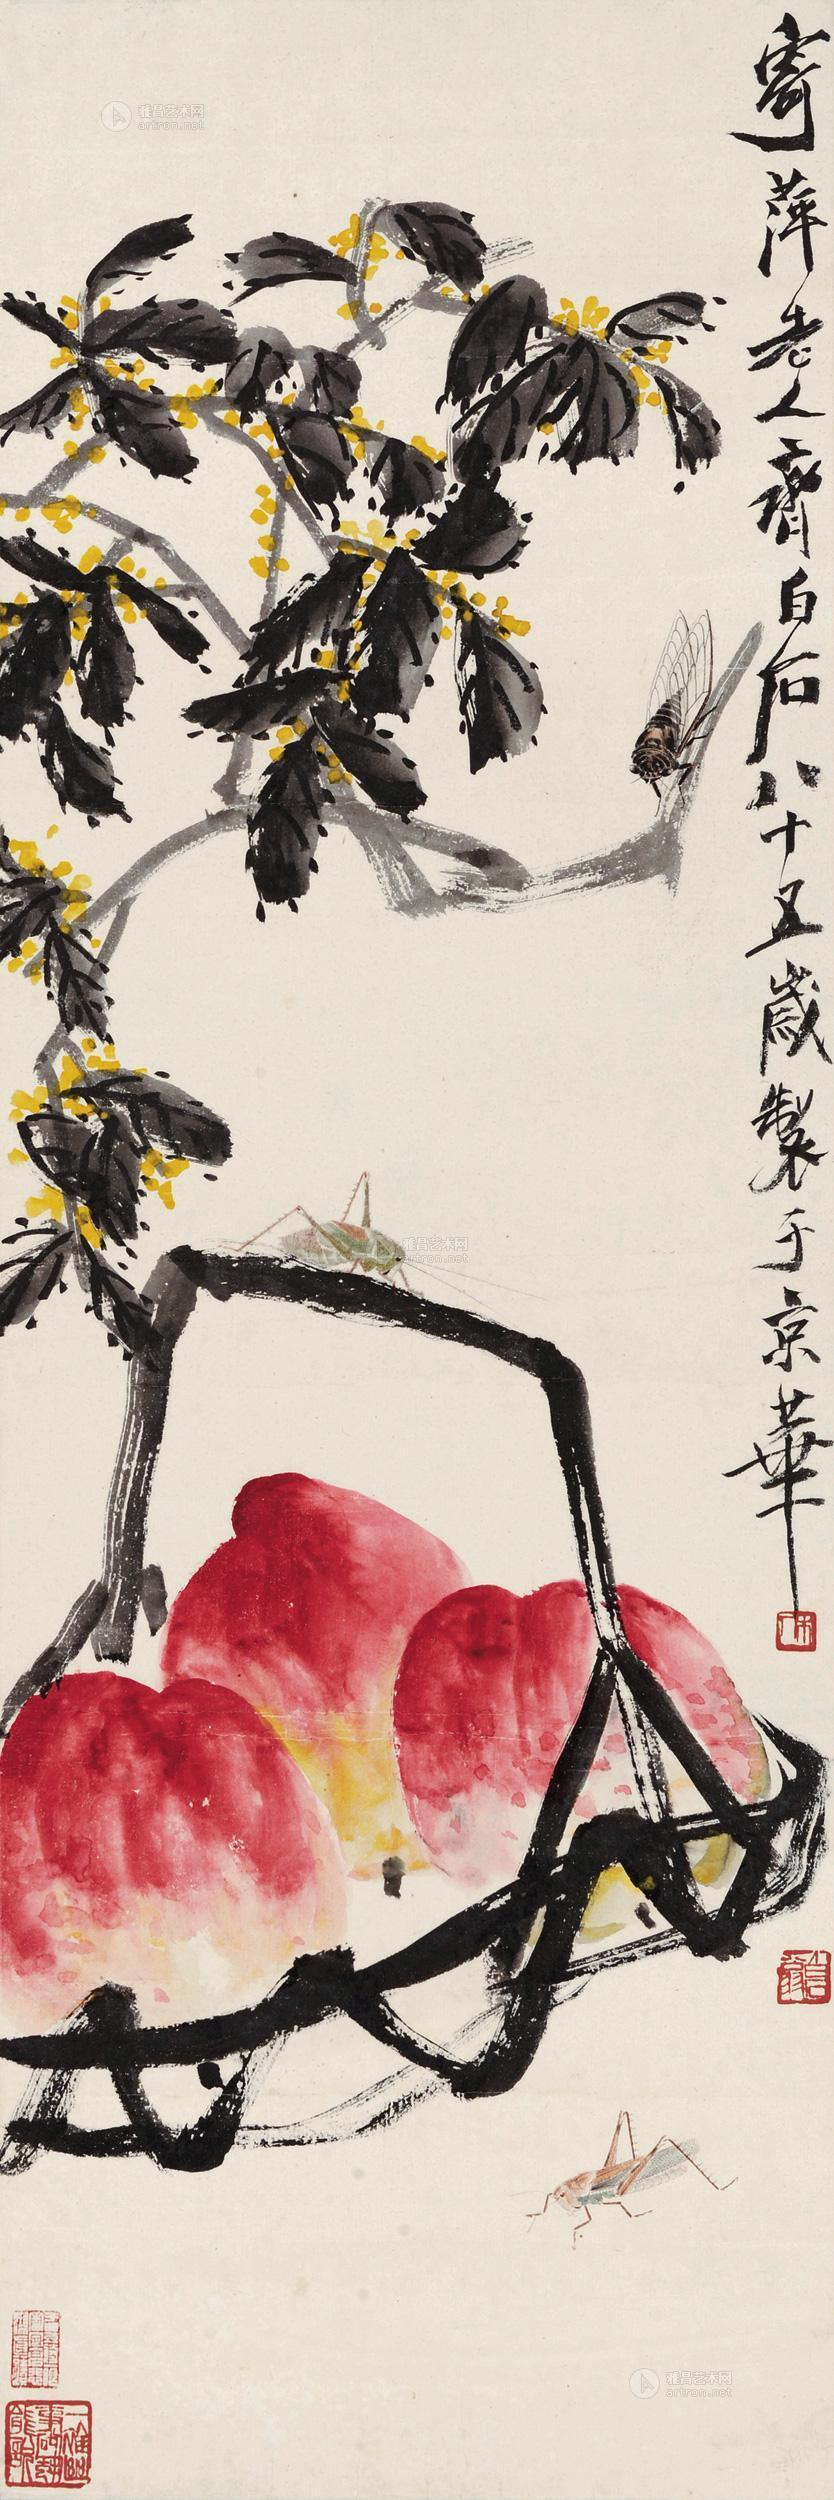 寄萍老人齊白石八十五歲製于京華
雅昌艺术网
artron.net
雅昌艺术网
artron.net
雅昌艺术网
artron.net